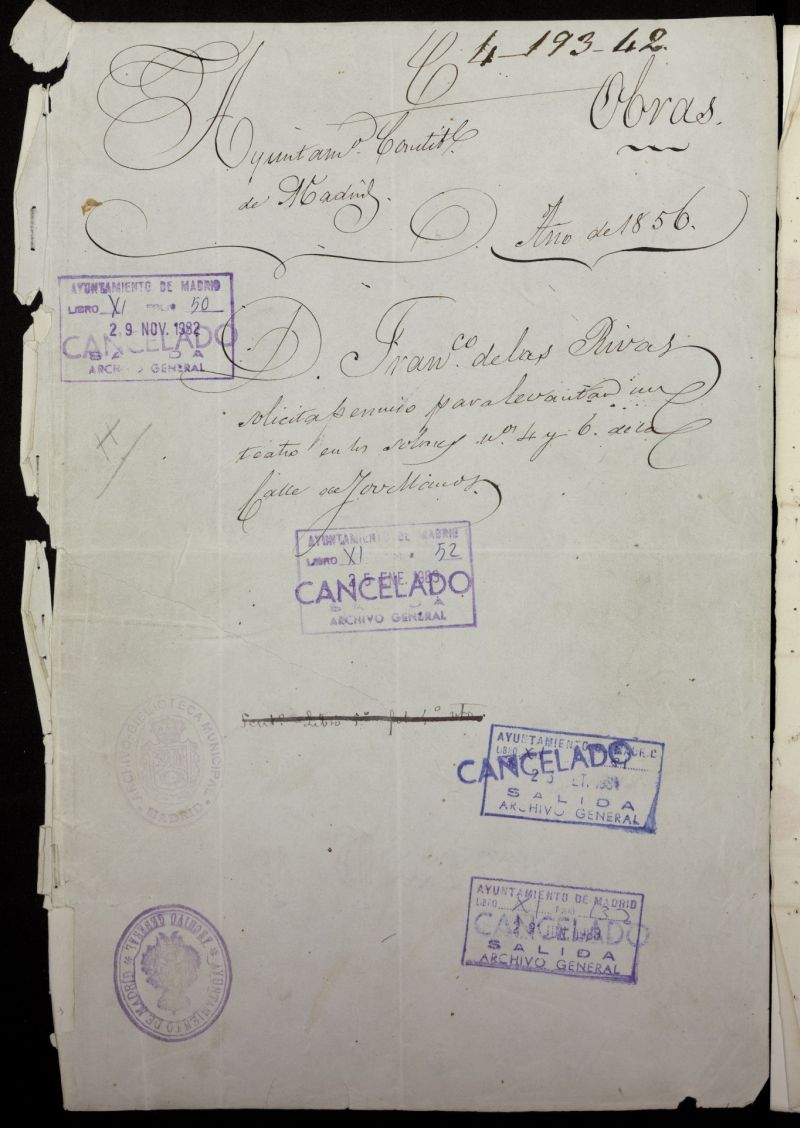 4-193-42
Obras.
Ayuntam.º Constitl.
de Madrid.
Año de 1856.
AYUNTAMIENTO DE MADRID
LIBRO XI FOLIO 50
29 NOV. 1982
CANCELADO
SALIDA
ARCHIVO GENERAL
D. Fran.co de las Rivas
solicita permiso para levantar un
teatro en los solares n.os 4 y 6. de la
Calle de Jovellanos
AYUNTAMIENTO DE MADRID
LIBRO XI 52
25 ENE.
CANCELADO
SALIDA
ARCHIVO GENERAL
Libro
ARCHIVO-BIBLIOTECA MUNICIPAL
MADRID
AYUNTAMIENTO DE MADRID
LIBRO
CANCELADO
SALIDA
ARCHIVO GENERAL
AYUNTAMIENTO DE MADRID
LIBRO XI FOLIO 132
CANCELADO
SALIDA
ARCHIVO GENERAL
AYUNTAMIENTO DE MADRID
ARCHIVO GENERAL